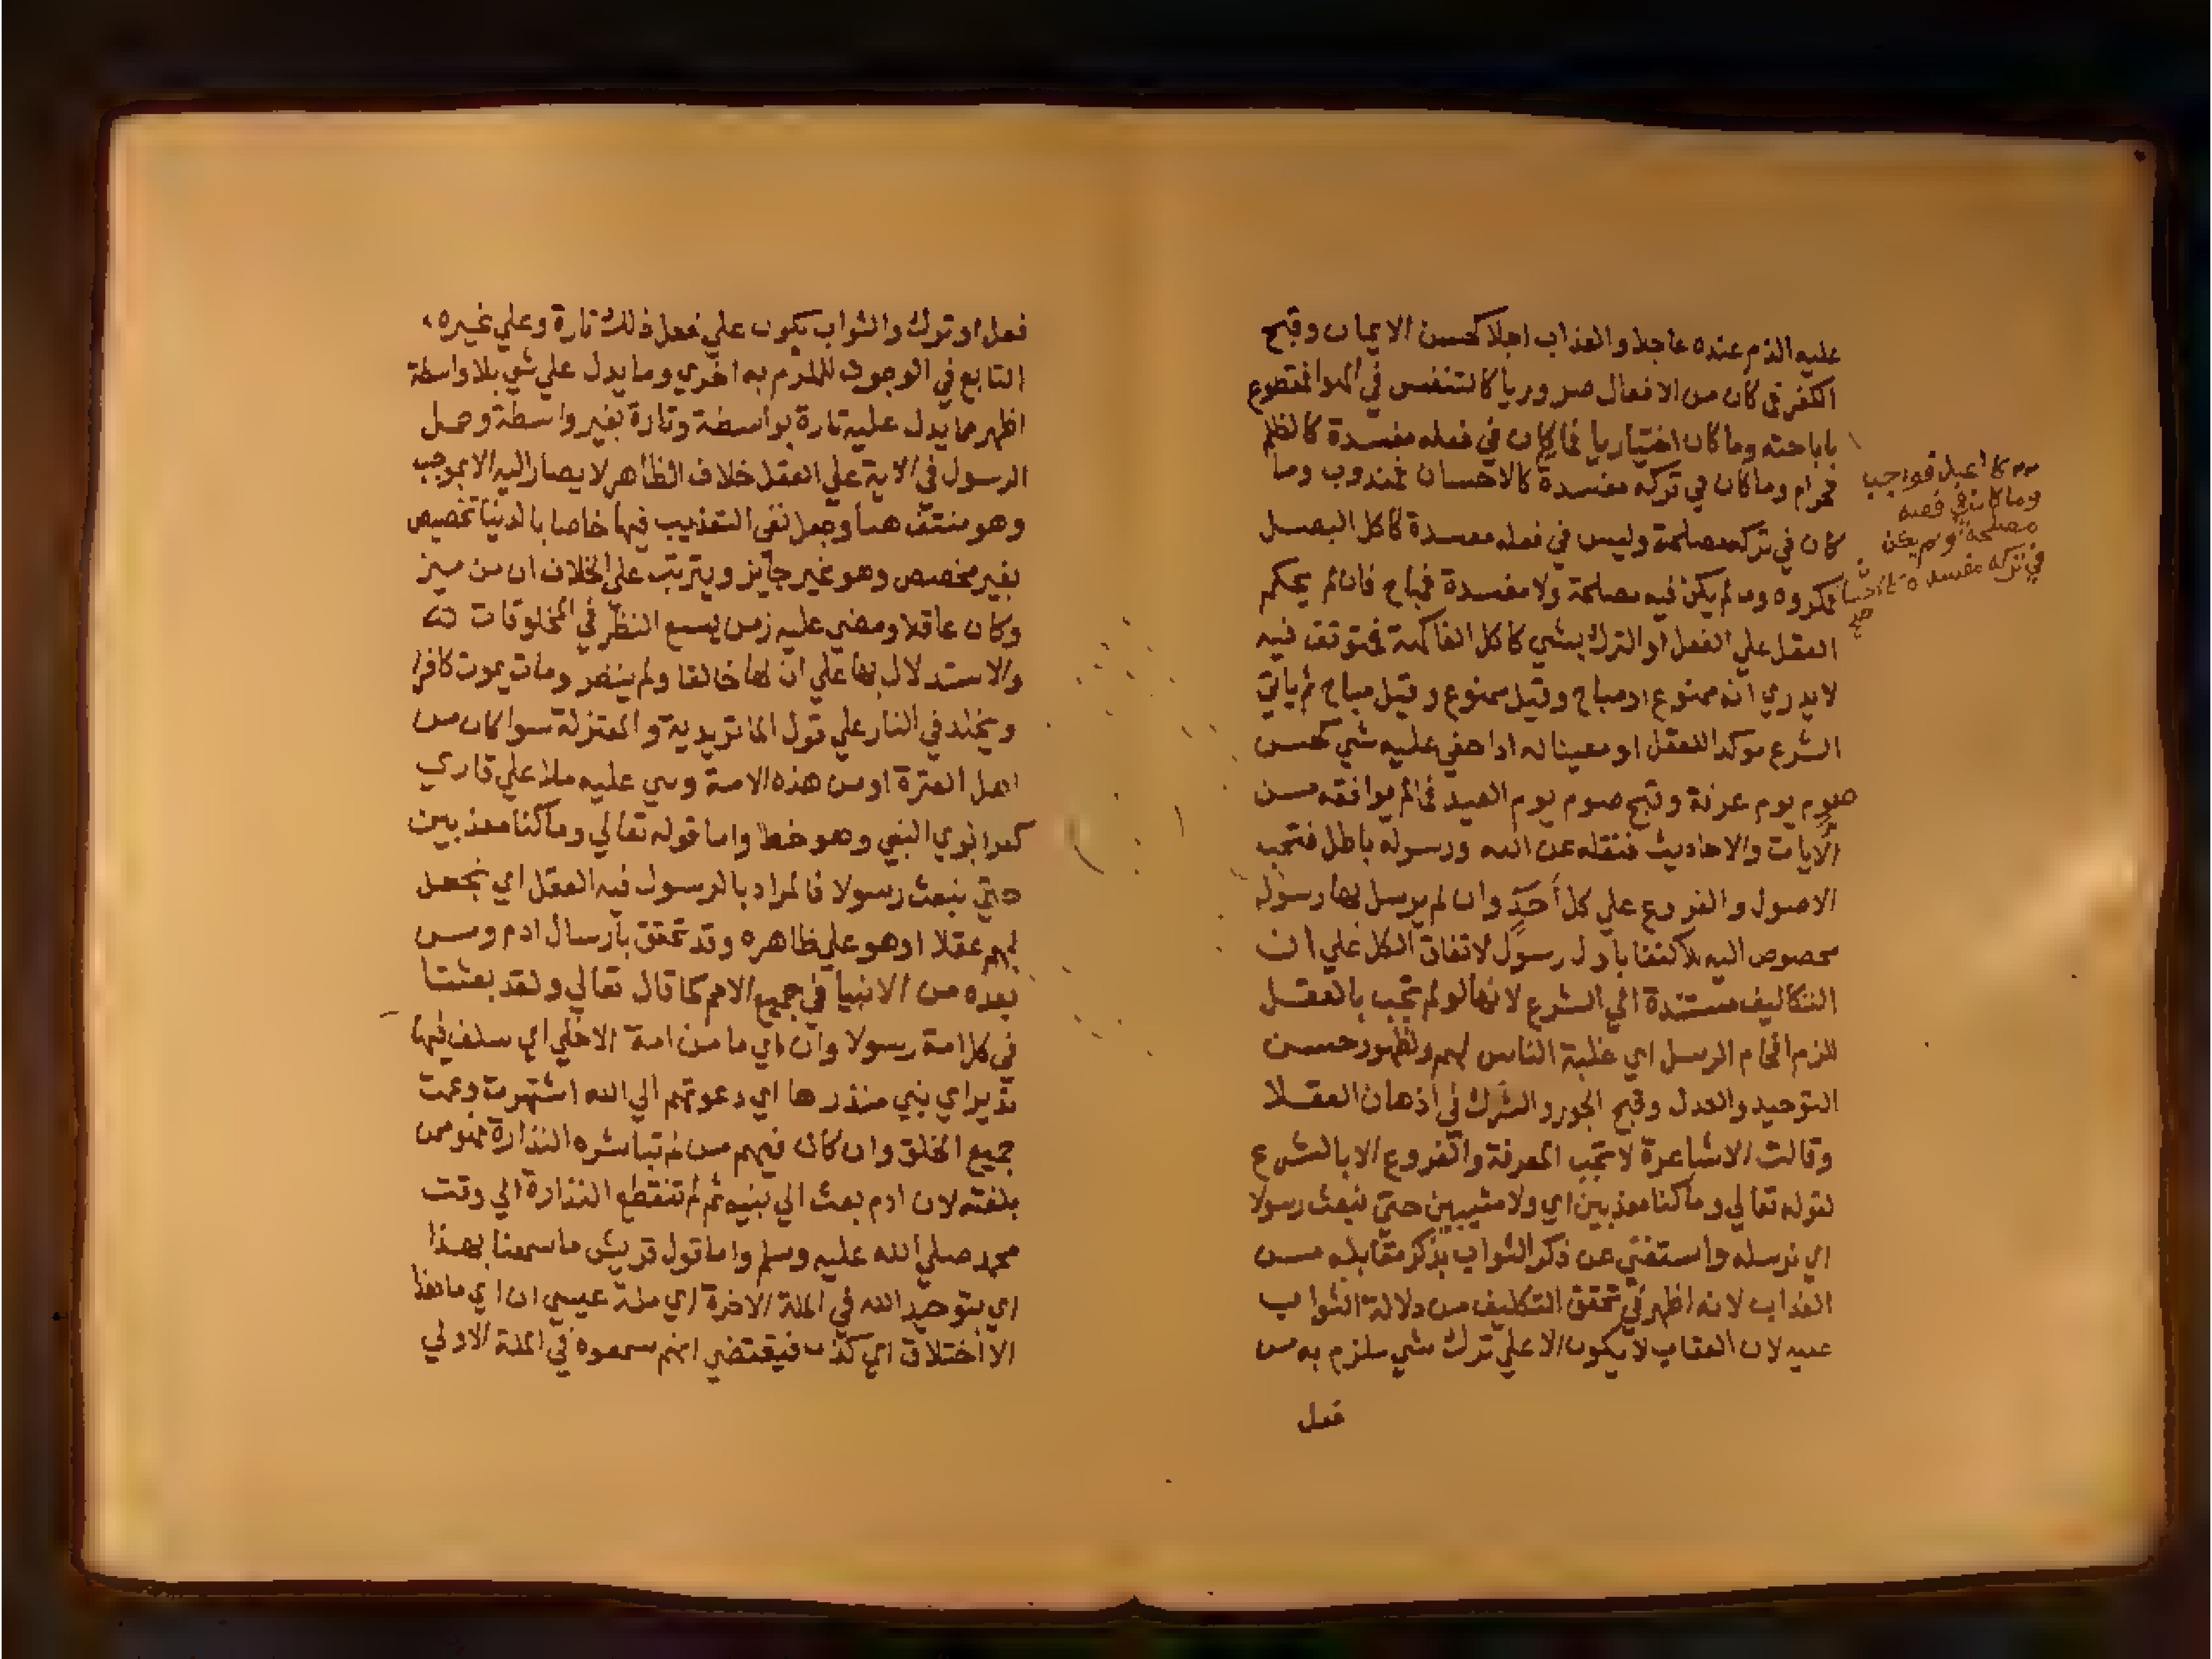 عليه الذم عنده عاجلا والعذاب اجلا كحسن الايمان وقبح
الكفر كان من الافعال ضروريا كالتنفس في الهوا فمقطوع
باباحته وما كان اختياريا فما كان في فعله مفسدة كالظلم
فحرام وما كان في تركه مفسدة كالاحسان فمندوب وما
كان في تركه مصلحة وليس في فعله مفسدة كاكل البصل
فمكروه وما لم يكن فيه مصلحة ولا مفسدة فمباح فان لم يحكم
العقل علي الفعل او الترك بشي كاكل الفاكهة فمتوقف فيه
لا يدري انه ممنوع او مباح وقيل ممنوع وقيل مباح ثم ياتي
الشرع موكدا للعقل او معينا له اذا خفي عليه شي كحسن
صوم يوم عرفة وقبح صوم يوم العيد فما لم يوافقه من
الايات والاحاديث فنقله عن الله ورسوله باطل فتجب
الاصول والفروع علي كل احد وان لم يرسل لها رسول
مخصوص اليه للاكتفا باول رسول لاتفاق الكل علي ان
التكاليف مستندة الي الشرع لانها لو لم تجب بالعقل
للزم افحام الرسل اي غلبة الناس لهم ولظهور حسن
التوحيد والعدل وقبح الجور والشرك في اذهان العقلا
وقالت الاشاعرة لا تجب المعرفة والفروع الا بالشرع
لقوله تعالي وما كنا معذبين اي ولا مثيبين حتي نبعث رسولا
اي نرسله واستغني عن ذكر الثواب بذكر مقابله من
العذاب لانه اظهر في تحقق التكليف من دلالة الثواب
عليه لان العقاب لا يكون الا علي ترك شي ملزم به من
فعل
كاعدل فواجب
وما كان في فعله
مصلحة ولم يكن
في تركه مفسدة
صح
فعل او ترك والثواب يكون علي فعل ذلك تارة وعلي غيره
التابع في الوجوب للملزم به اخري وما يدل علي شي بلا واسطة
اظهر مما يدل عليه تارة بواسطة وتارة بغير واسطة وحمل
الرسول في الاية علي العقل خلاف الظاهر لا يصار اليه الا بموجب
وهو منتف هنا وجعل نفي التعذيب فيها خاصا بالدنيا تخصيص
بغير مخصص وهو غير جايز ويترتب علي الخلاف ان من ميز
وكان عاقلا ومضي عليه زمن يسع النظر في المخلوقات
والاستدلال بها علي ان لها خالقا ولم ينظر ومات يموت كافرا
ويخلد في النار علي قول الماتريدية والمعتزلة سوا كان من
اهل الفترة او من هذه الامة ومشي عليه ملا علي قاري
ابوي النبي وهو خطا واما قوله تعالي وما كنا معذبين
حتي نبعث رسولا فالمراد بالرسول فيه العقل اي نجعل
لهم عقلا او هو علي ظاهره وقد تحقق بارسال ادم ومن
بعده من الانبيا في جميع الامم كما قال تعالي ولقد بعثنا
في كل امة رسولا وان اي ما من امة الا خلي اي سلف فيها
نذير اي نبي منذرها اي دعوتهم الي الله اشتهرت وعمت
جميع الخلق وان كان فيهم من لم تباشره النذارة فهو ممن
بلغته لان ادم بعث الي بنيه ثم لم تنقطع النذارة الي وقت
محمد صلي الله عليه وسلم واما قول قريش ما سمعنا بهذا
اي بتوحيد الله في الملة الاخرة اي ملة عيسي ان اي ما هذا
الا اختلاق اي كذب فيقتضي انهم سمعوه في الملة الاولي